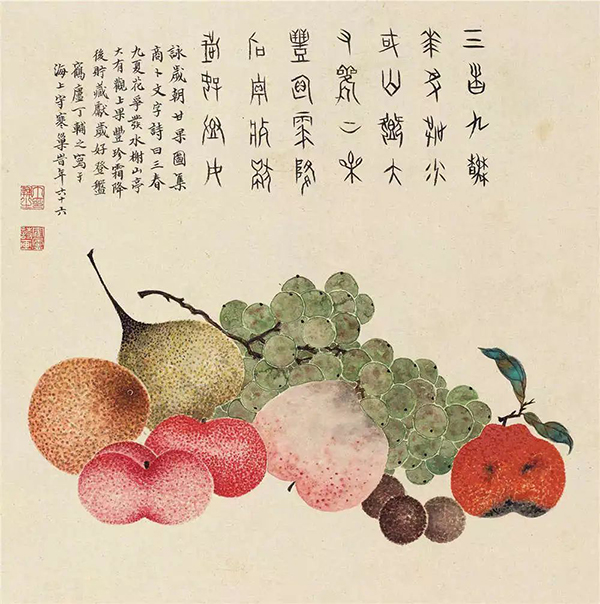 三春九夏
華爭發水
榭山亭大
有觀上果
豐珍霜降
后貯藏獻
歲好登盤
詠歲朝甘果圖集
商卜文字詩曰三春
九夏花爭發水榭山亭
大有觀上果豐珍霜降
後貯藏獻歲好登盤
鶴廬丁輔之寫于
海上守寒巢旹年六十六